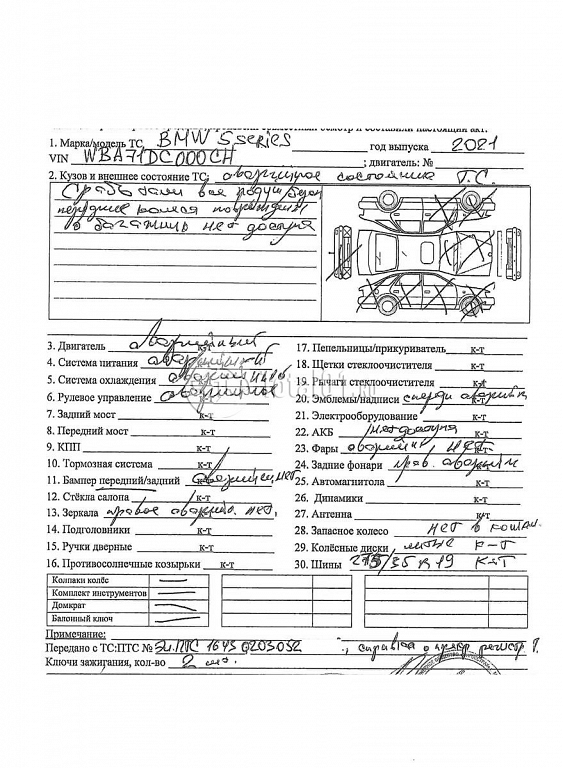 1. Марка/модель ТС BMW 5 series год выпуска 2021
VIN WBA71DC000CH ; двигатель: №
2. Кузов и внешнее состояние ТС: аварийное состояние Т.С.
нет доступа
3. Двигатель аварийный к-т
4. Система питания аварийн к-т
5. Система охлаждения аварийн
6. Рулевое управление аварийное
7. Задний мост к-т
8. Передний мост к-т
9. КПП к-т
10. Тормозная система к-т
11. Бампер передний/задний аварийн, нет
12. Стёкла салона к-т
13. Зеркала правое аварийн. нет,
14. Подголовники к-т
15. Ручки дверные к-т
16. Противосолнечные козырьки к-т
17. Пепельницы/прикуриватель к-т
18. Щетки стеклоочистителя к-т
19. Рычаги стеклоочистителя к-т
20. Эмблемы/надписи спереди аварийн
21. Электрооборудование к-т
22. АКБ нет доступа
23. Фары аварийн нет
24. Задние фонари прав. аварийн
25. Автомагнитола к-т
26. Динамики к-т
27. Антенна к-т
28. Запасное колесо нет в компл.
29. Колёсные диски литые к-т
30. Шины 275/35 R19 к-т
Колпаки колёс —
Комплект инструментов —
Домкрат —
Балонный ключ —
Примечание:
Передано с ТС:ПТС № Эл.ПТС 1643 0203032 ., справка о
Ключи зажигания, кол-во 2 шт.